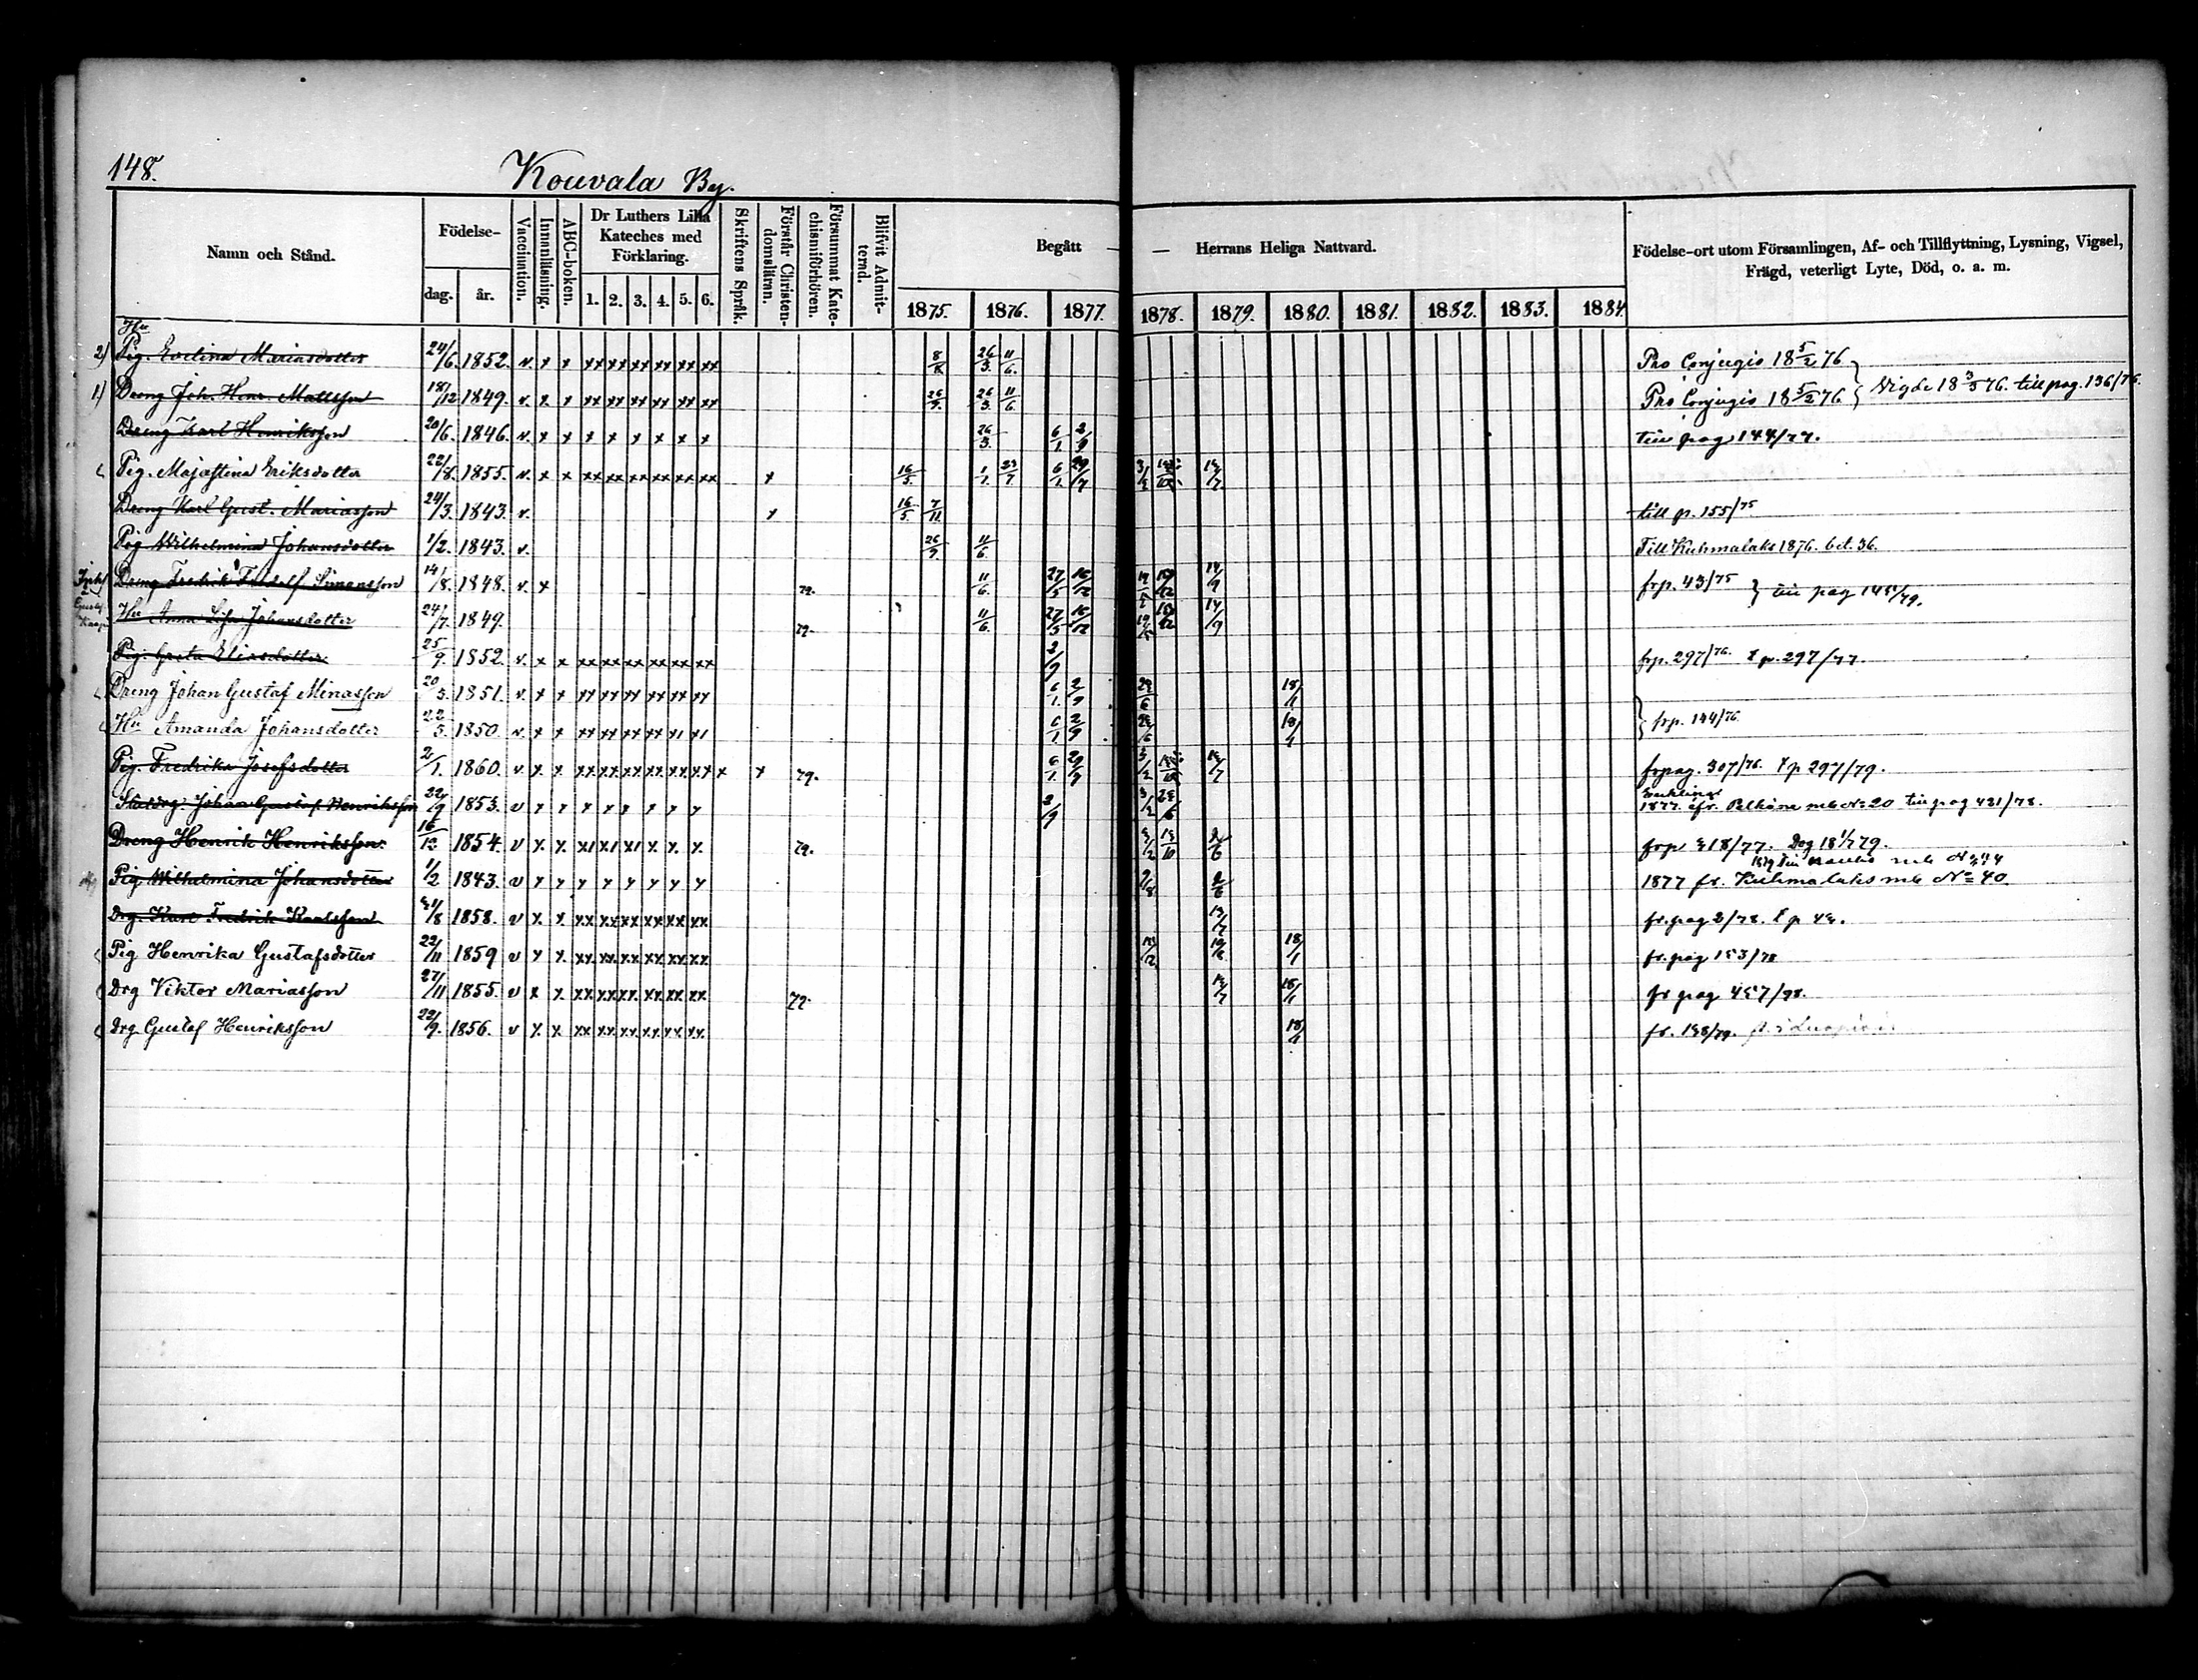 148.
Kouvala By.
Namn och Stånd.
Födelse-
dag. år.
Vaccination.
Innanläsning.
ABC-boken.
Dr Luthers Lilla Kateches med Förklaring.
1. 2. 3. 4. 5. 6.
Skriftens Språk.
Förstår Christendomsläran.
Försummat Katechismiförhören.
Blifvit Admitterad.
Begått — — Herrans Heliga Nattvard.
1875. 1876. 1877. 1878. 1879. 1880. 1881. 1882. 1883. 1884.
Födelse-ort utom Församlingen, Af- och Tillflyttning, Lysning, Vigsel,
Frägd, veterligt Lyte, Död, o. a. m.
Hu
2) Pig. Evelina Mariasdotter 24/6. 1852. v. x x xx xx xx xx xx xx 8/8 26/3. 11/6. Pro Conjugio 18 5/2 76
1) Dreng Joh. Henr. Mattsson 18/12 1849. v. x. x xx xx xx xx xx xx 26/9. 26/3. 11/6 Pro Conjugio 18 5/2 76 } Vigde 18 3/3 76. till pag. 136/76.
Dreng Karl Henriksson 20/6. 1846. v. x x x x x x x x 26/3. 6/1. 2/9 till pag 144/77.
Pig. Majastina Eriksdotter 22/8. 1855. v. x x xx xx xx xx xx xx x 16/5. 1/1. 23/7. 6/1. 29/7
Dreng Karl Gust. Mariasson 24/3. 1843. v. x 16/5. 7/11. till p. 155/75
Pig Wilhelmina Johansdotter 1/2. 1843. v. 26/9. 11/6. Till Kuhmalaks 1876. bet. 36.
Dreng Fredrik Fridolf Simonsson 14/8. 1848. v. x 79. 11/6. 27/5 16/12 14/9 frp. 43/75
Hu Anna Lisa Johansdotter 24/7. 1849. 79. 11/6. 27/5 16/12 14/9
Pig. Greta Eliasdotter 25/9. 1852. v. x x xx xx xx xx xx xx 2/9 frp. 297/76. T p. 297/77.
Dreng Johan Gustaf Minasson 20/3. 1851. v. x x xx xx xx xx xx xx 6/1. 2/9 18/1
Hu Amanda Johansdotter 22/3. 1850. v. x x 6/1. 2/9 18/1 } frp. 144/76
Pig. Fredrika Josefsdotter 2/1. 1860. v x. x xx xx xx xx xx xx x x 79. 6/1. 29/7 frpag. 307/76. T p 297/79.
Johan Gustaf Henriksson 22/9 1853. v x x x x x x x x 2/9 1877. fr. Pelkäne mb No 20 till pag 421/78.
Dreng Henrik Henriksson 16/12 1854. v x. x. 79. 2/6 Dog 18 1/7 79.
Pig. Wilhelmina Johansdotter 1/2 1843. v x x x x x x x x 2/6 1877 fr. Kuhmalaks mb No 40
Drg. Karl Fredrik Karlsson 1858. v x. x xx xx xx xx xx xx fr. pag 2/78.
Pig Henrika Gustafsdotter 22/11 1859 v x x. xx xx xx xx xx xx 18/1 fr. pag 153/78
Drg Viktor Mariasson 27/11 1855. v x x. xx xx xx xx xx xx 79. 18/1 fr pag 457/78.
Drg Gustaf Henriksson 22/9. 1856. v x x. xx xx xx xx xx xx 18/1